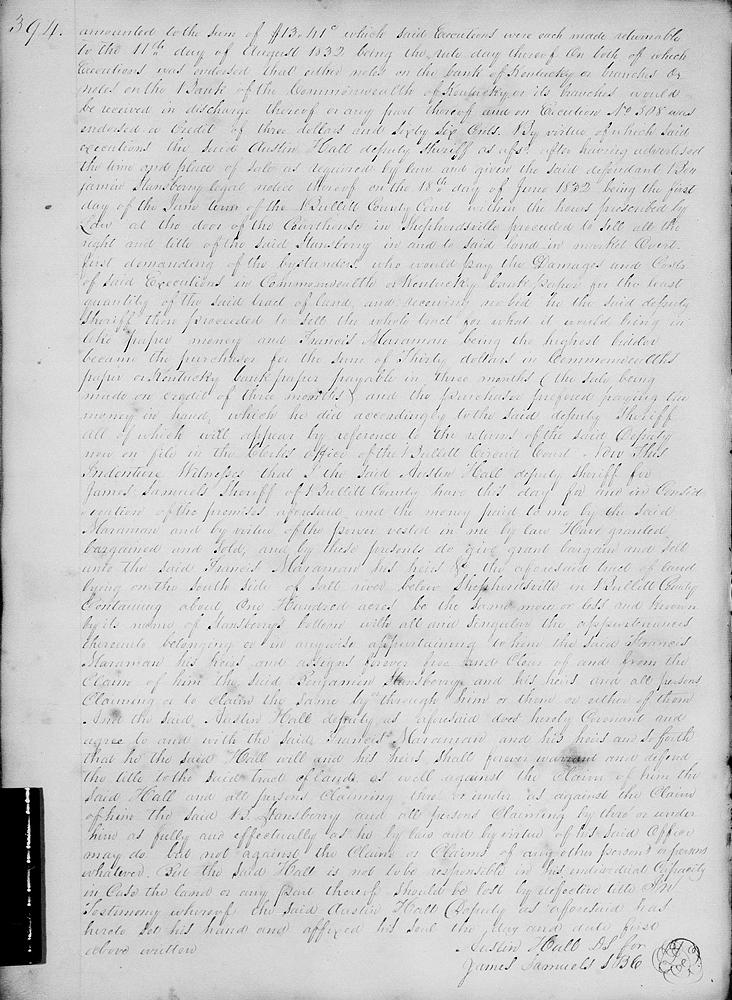 394.
amounted to the sum of $13.41c which said Executions were each made returnable
to the 11th day of August 1832 being the rule day thereof On both of which
Executions was endorsed that either notes on the bank of Kentucky or branches or
notes on the Bank of the Commonwealth of Kentucky or its branches would
be received in discharge thereof or any part thereof and on Execution No 308 was
endorsed a Credit of three dollars and Sixty Six Cents. By virtue of which said
executions the said Austin Hall deputy Sheriff as afsd after having advertised
the time and place of sale as required by law and given the said defendant Ben
jamin Stansberry legal notice thereof on the 18th day of June 1832 being the first
day of the June term of the Bullitt County Court within the hours prescribed by
Law at the door of the Courthouse in Shepherdsville proceeded to sell all the
right and title of the said Stansberry in and to said land in market Overt
first demanding of the bystanders who would pay the Damages and Costs
of said Executions in Commonwealth or Kentucky bank paper for the least
quantity of the said tract of land, and receiving no bid he the said deputy
Sheriff then proceeded to sell the whole tract for what it would bring in
like paper money and Francis Maraman being the highest bidder
became the purchaser for the sum of Thirty dollars in Commonwealths
paper or Kentucky bank paper payable in three months (the sale being
made on credit of three months) and the purchaser prefered paying the
money in hand, which he did accordingly to the said deputy Sheriff
all of which will appear by reference to the returns of the said Deputy
now on file in the Clerks office of the Bullitt Circuit Court. Now This
Indenture Witnesses that I the said Austin Hall deputy sheriff for
James Samuels Sheriff of Bullitt County have this day for and in Consid
eration of the premises aforesaid and the money paid to me by the said
Maraman and by virtue of the power vested in me by law Have granted
bargained and sold, and by these presents do give grant bargain and sell
unto the said Francis Maraman his heirs &c the aforesaid tract of land
lying on the south side of salt river below Shepherdsville in Bullitt County
Containing about One Hundred acres be the same more or less and known
by its name of Stansberrys bottom with all and singular the appurtenances
thereunto belonging or in anywise appertaining to him the said Francis
Maraman his heirs and assigns forever free and Clear of and from the
Claim of him the said Benjamin Stansberry and his heirs and all persons
Claiming or to claim the same by through him or them or either of them
And the said Austin Hall deputy as aforesaid does hereby Covenant and
agree to and with the said Francis Maraman and his heirs and so forth
that he the said Hall will and his heirs shall forever warrant and defend
the title to the said tract of land as well against the Claim of him the
said Hall and all persons Claiming thro or under as against the Claim
of him the said B. Stansberry and all persons Claiming by thro or under
him as fully and effectually as he by law and by virtue of his said Office
may do but not against the Claim or Claims of any other person or persons
whatever. But the said Hall is not to be responsible in his individual Capacity
in Case the land or any part thereof should be lost by defective title In
Testimony whereof the said Austin Hall Deputy as aforesaid has
hereto set his hand and affixed his seal the day and date first
above written
Austin Hall DS for
James Samuels SBC